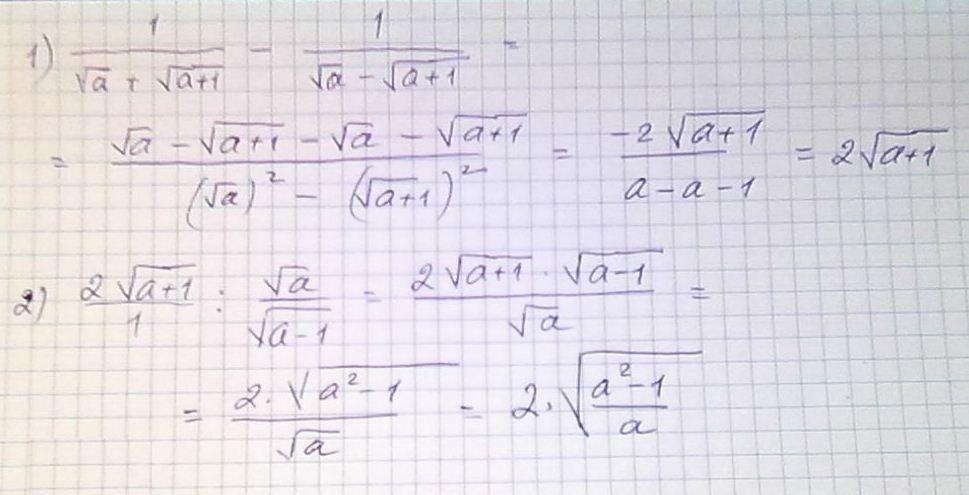 1) 1/(√a + √(a+1)) - 1/(√a - √(a+1)) =
= (√a - √(a+1) - √a - √(a+1))/((√a)² - (√(a+1))²) = (-2√(a+1))/(a-a-1) = 2√(a+1)
2) (2√(a+1))/1 : √a/√(a-1) = (2√(a+1) · √(a-1))/√a =
= (2·√(a²-1))/√a = 2·√((a²-1)/a)